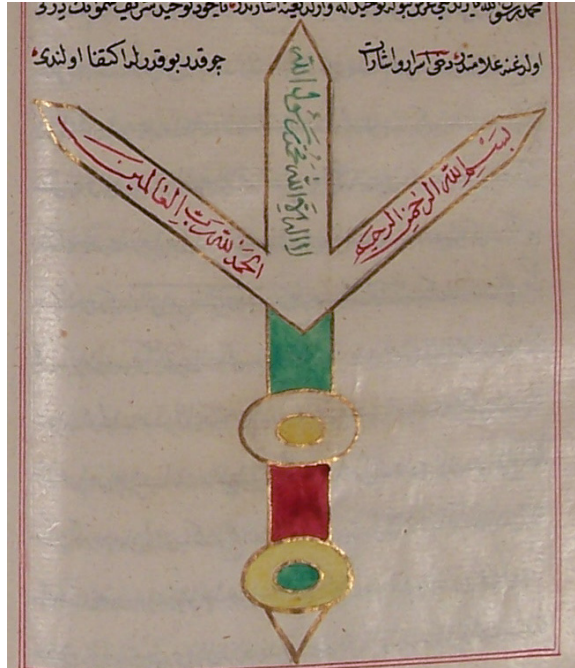 محمد رسول الله
اولدغنه علامتدر دخی اسرار واشارات چوقدر بو قدرله اکتفا اولندی
بسم الله الرحمن الرحيم
لا اله الا الله محمد رسول الله
الحمد لله رب العالمين